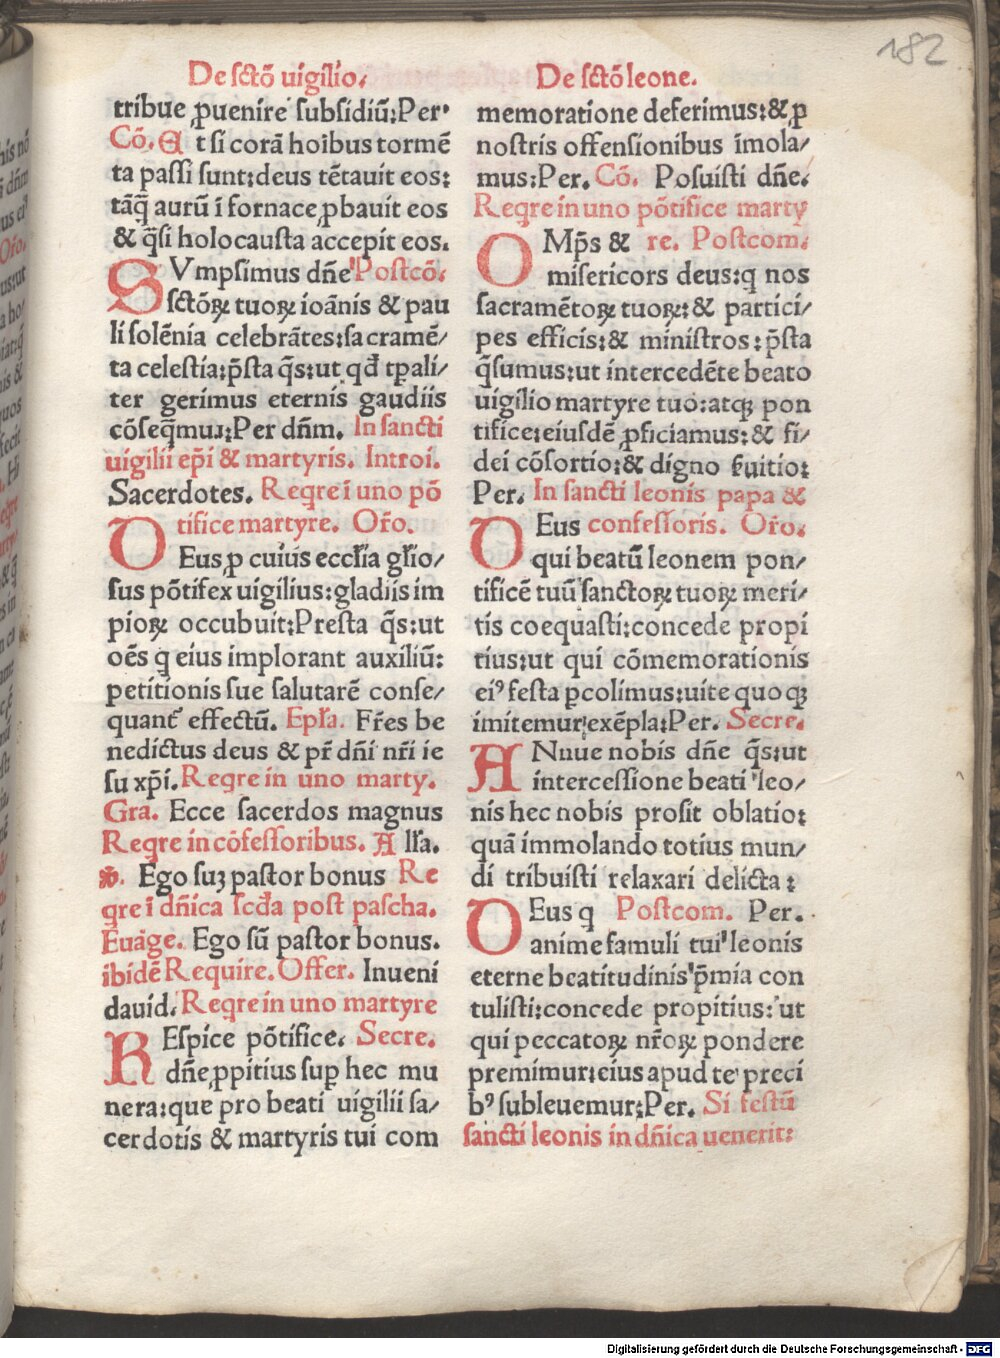 182
De sctõ uigilio.
tribue ꝓuenire subsidiũ:Per.
Cõ. Et si corã hoibus tormẽ
ta passi sunt:deus tẽtauit eos:
tãq̃ aurũ ĩ fornace ꝓbauit eos
& q̃si holocausta accepit eos.
SVmpsimus dñe Postcõ.
sctõꝝ tuoꝝ ioãnis & pau
li solẽnia celebrãtes:sacramẽ/
ta celestia:p̃sta q̃s:ut qđ tꝑali/
ter gerimus eternis gaudiis
cõseq̃mur:Per dñm. In sancti
uigilii ep̃i & martyris. Introi.
Sacerdotes. Reqre ĩ uno põ
tifice martyre. Oꝛ̃o.
DEus ꝑ cuius eccl̃ia gl̃io/
sus põtifex uigilius:gladiis im
pioꝝ occubuit:Presta q̃s:ut
oẽs q eius implorant auxiliũ:
petitionis sue salutarẽ conse/
quant̃ effectũ. Epl̃a. Fr̃es be
nedictus deus & pr̃ dñi nr̃i ie
su xp̃i. Reqre in uno marty.
Gra. Ecce sacerdos magnus
Reqre in cõfessoribus. All̃a.
℣. Ego suꝫ pastor bonus Re
qre ĩ dñica scđa post pascha.
Euãge. Ego sũ pastor bonus.
ibidẽ Require. Offer. Inueni
dauid. Reqre in uno martyre
REspice põtifice. Secre.
dñe ꝓpitius suꝑ hec mu
nera:que pro beati uigilii sa/
cerdotis & martyris tui com
De sctõ leone.
memoratione deferimus:& ꝓ
nostris offensionibus ĩmola/
mus:Per. Cõ. Posuisti dñe.
Reqre in uno põtifice marty
OMp̃s & re. Postcom.
misericors deus:q nos
sacramẽtoꝝ tuoꝝ:& partici/
pes efficis:& ministros:p̃sta
q̃sumus:ut intercedẽte beato
uigilio martyre tuo:atqꝫ pon
tifice:eiusdẽ ꝓficiamus:& fi/
dei cõsortio:& digno ẜuitio:
Per. In sancti leonis papa &
DEus confessoris. Oꝛ̃o.
qui beatũ leonem pon/
tificẽ tuũ sanctoꝝ tuoꝝ meri/
tis coequasti:concede propi
tius:ut qui cõmemorationis
eiꝰ festa ꝑcolimus:uite quoqꝫ
imitemur exẽpla:Per. Secre.
ANnue nobis dñe q̃s:ut
intercessione beati leo/
nis hec nobis prosit oblatio:
quã immolando totius mun/
di tribuisti relaxari delicta:
DEus q Postcom. Per.
anime famuli tui leonis
eterne beatitudinis p̃mia con
tulisti:concede propitius:ut
qui peccatoꝝ nr̃oꝝ pondere
premimur:eius apud te preci
bꝰ subleuemur:Per. Si festũ
sancti leonis in dñica uenerit:
Digitalisierung gefördert durch die Deutsche Forschungsgemeinschaft - DFG